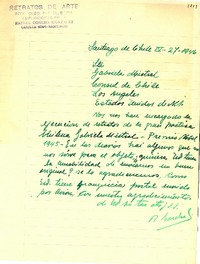 RETRATOS DE ARTE
Santiago de Chile IV-27-1946
Sra
Gabriela Mistral
Consul de Chile
Los Angeles
Estados Unidos de N.A.
Nos han encargado la
ejecucion de retratos de la gran poetisa
chilena Gabriela Mistral - Premio Nobel
1945 - En los diarios hai algunos que no
nos sirve para el objeto; quiere Ud tener
la amabilidad de enviarnos un buen
original? se lo agradeceremos. Como
Ud. tiene franquicia postal enviado
por avion. Con
de Ud.